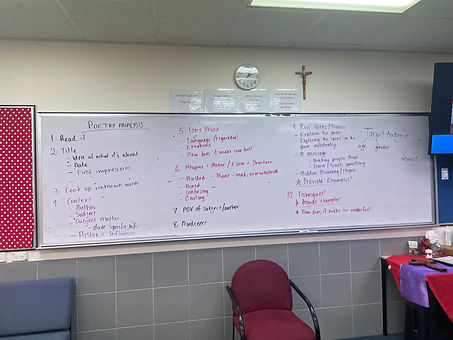 POETRY ANALYSIS
1 Read it.
2 Title
- Idea of what it's about
- Date
- First impressions
3 Look up unknown words
4 Context
- Author
- Subject
- Subject matter
- date specific info
- Historic influence
5 Tone/Mood
- Language (figurative)
- Emotions
- How does it make you feel?
6 Rhyme + Meter / Form + Structure
- Rushed
- Paced
- confusing
- Exciting
7 POV of subject/author
8 Audience
9 Key Ideas/Themes
- Explain the poem
- Exploring the ideas in the poem
- A message
- making people think
- Hidden Meaning
★ Provide Examples!
10 Techniques!
★ Provide examples
★ How does it make me feel?
Target Audience
age
gender
interest